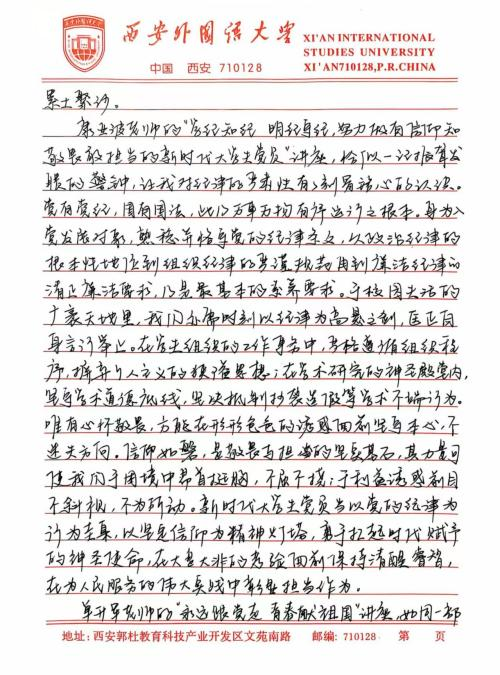 西安外国语大学
XI'AN INTERNATIONAL
STUDIES UNIVERSITY
中国 西安 710128
XI'AN710128,P.R.CHINA
累土聚沙。
康亚波老师的“学纪知纪 明纪守纪,努力做有信仰知
敬畏敢担当的新时代大学生党员”讲座,恰似一记振聋发
聩的警钟,让我对纪律的严肃性有了刻骨铭心的认识。
党有党纪,国有国法,此乃万事万物有序运行之根本。身为入
党发展对象,熟稔并恪守党的纪律条文,从政治纪律的
根本性地位到组织纪律的严谨规范再到廉洁纪律的
清正廉洁要求,乃是最基本的素养要求。于校园生活的
广袤天地里,我们亦需时刻以纪律为高悬之剑,匡正自
身言行举止。在学生组织的工作事务中,严格遵循组织程
序,摒弃个人主义的狭隘思想;在学术研究的神圣殿堂内,
坚守学术道德底线,坚决抵制抄袭造假等学术不端行为。
唯有心怀敬畏,方能在形形色色的诱惑面前坚守本心,不
迷失方向。信仰如磐,是敬畏与担当的坚实基石,其力量可
使我们于困境中昂首挺胸,不屈不挠;于利益诱惑前目
不斜视,不为所动。新时代大学生党员当以党的纪律为
行为圭臬,以坚定信仰为精神灯塔,勇于扛起时代赋予
的神圣使命,在大是大非的考验面前保持清醒睿智,
在为人民服务的伟大实践中彰显担当作为。
单升军老师的“永远跟党走 青春献祖国”讲座,如同一部
地址:西安郭杜教育科技产业开发区文苑南路 邮编:710128 第 页